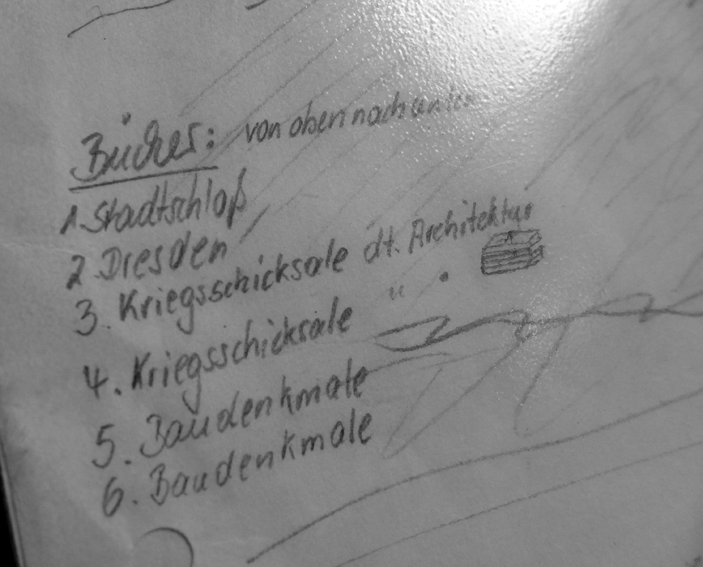 Bücher: von oben nach unten
1. Stadtschloß
2. Dresden
3. Kriegsschicksale dt. Architektur
4. Kriegsschicksale " "
5. Baudenkmale
6. Baudenkmale